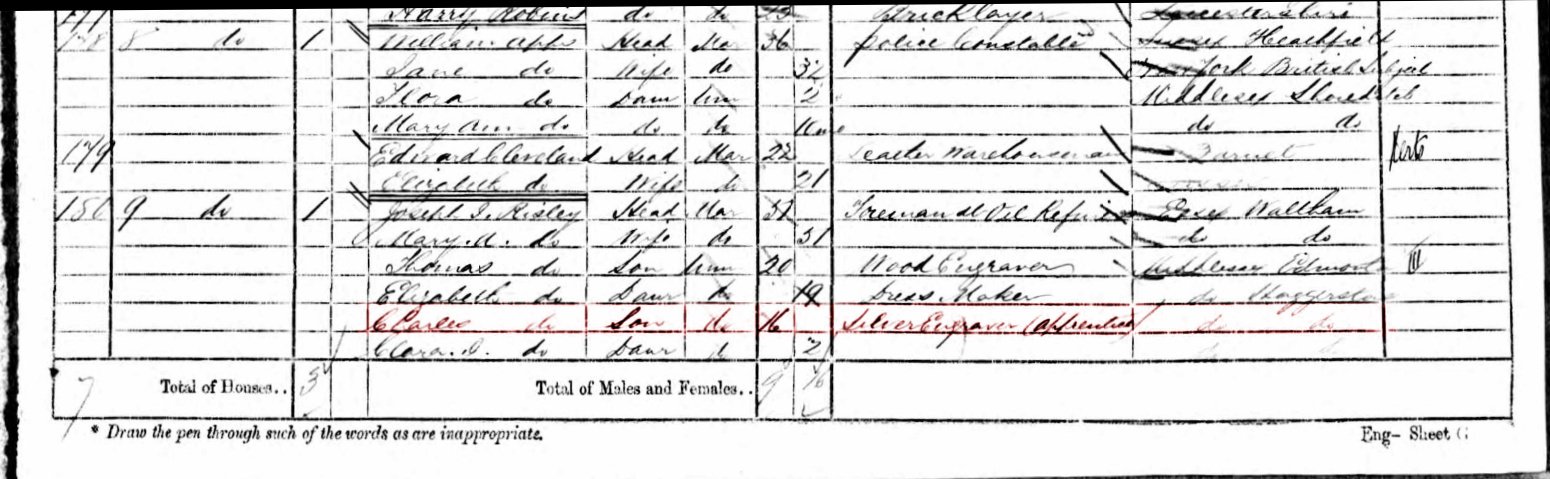 177 Harry Robins do do Bricklayer Leicestershire
178 8 do 1 William Apps Head Mar 36 Police Constable Sussex Heathfield
Jane do Wife do 32 New York British Subject
Flora do Daur Unm 2 Middlesex Shoreditch
Mary Ann do do do 10 mo do do
179 Edward Cleveland Head Mar 22 Leather Warehouseman Barnet Herts
Elizabeth do Wife do 21
180 9 do 1 Joseph Risley Head Mar Foreman at Oil Refiners Essex Waltham
Mary A. do Wife do 51 do do
Thomas do Son Unm 20 Wood Engraver Middlesex Edmonton
Elizabeth do Daur do 19 Dress Maker do Haggerston
Charles do Son do 16 Silver Engraver (apprentice) do do
Clara do Daur do
7 Total of Houses.. 3 Total of Males and Females.. 9 16
* Draw the pen through such of the words as are inappropriate.
Eng– Sheet G